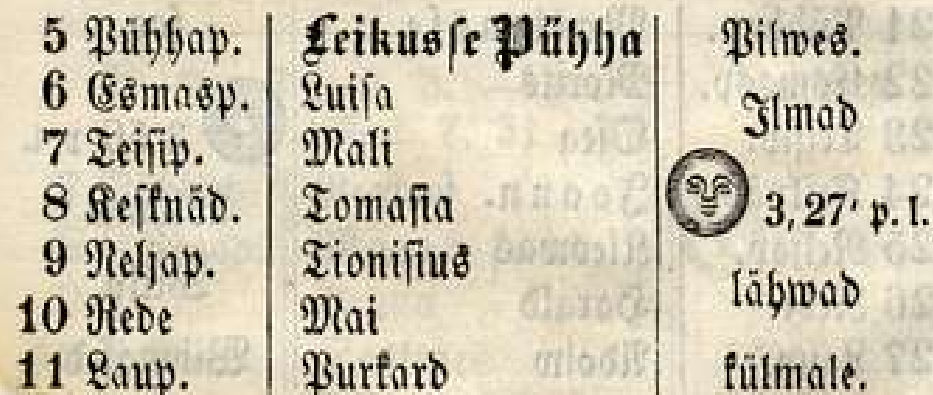 5 Pühhap. Leikusse Pühha Pilwes.
6 Esmasp. Luisa
Ilmad
7 Teisip. Mali
8 Kesknäd. Tomasia 3, 27' p. l.
9 Neljap. Tionisius
lähwad
10 Rede Mai
11 Laup. Purkard külmale.